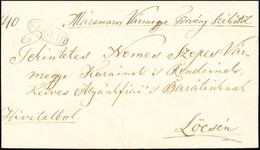 40 Máramaros Vármegye Törvény Székétől
Tekintetes Nemes Szepes Vár-
megye Karainak és Rendeinek,
Kedves Atyánkfiai és Barátinknak
Hivatalból
Lőcsén